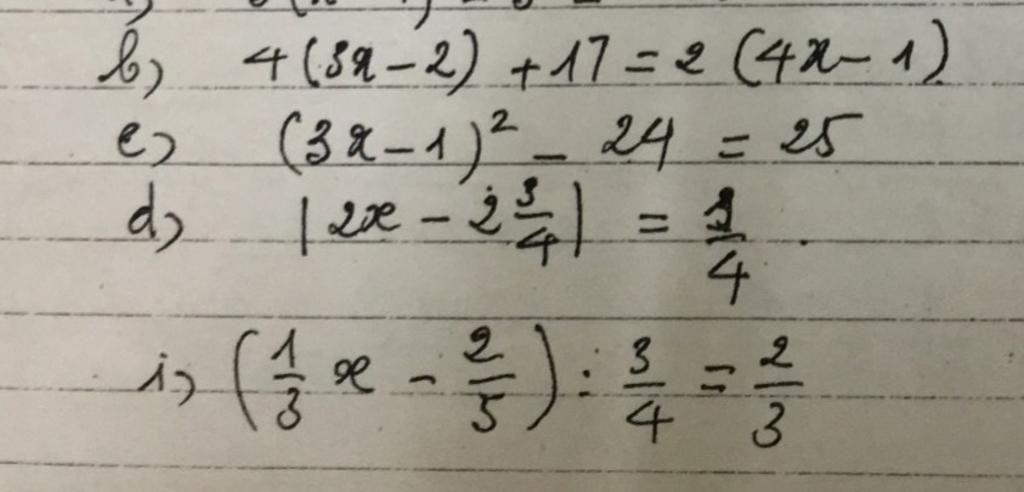 b) 4(3x-2) + 17 = 2 (4x-1)
c) (3x-1)² - 24 = 25
d) |2x - 2 3/4| =
i) (1/3 x - 2/5) : 3/4 = 2/3